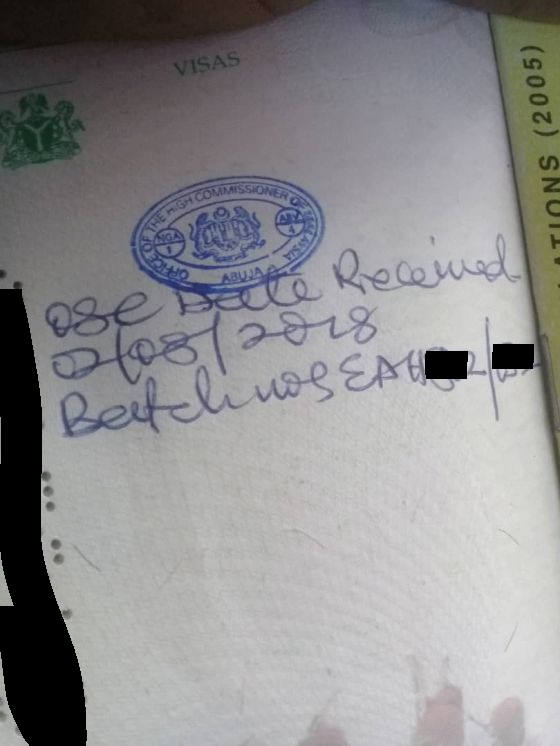 VISAS
OFFICE OF THE HIGH COMMISSIONER OF MALAYSIA
NGA
1
ABV
4
ABUJA
OSC Date Received
02/08/2018
Batch nos EAH
ATIONS (2005)